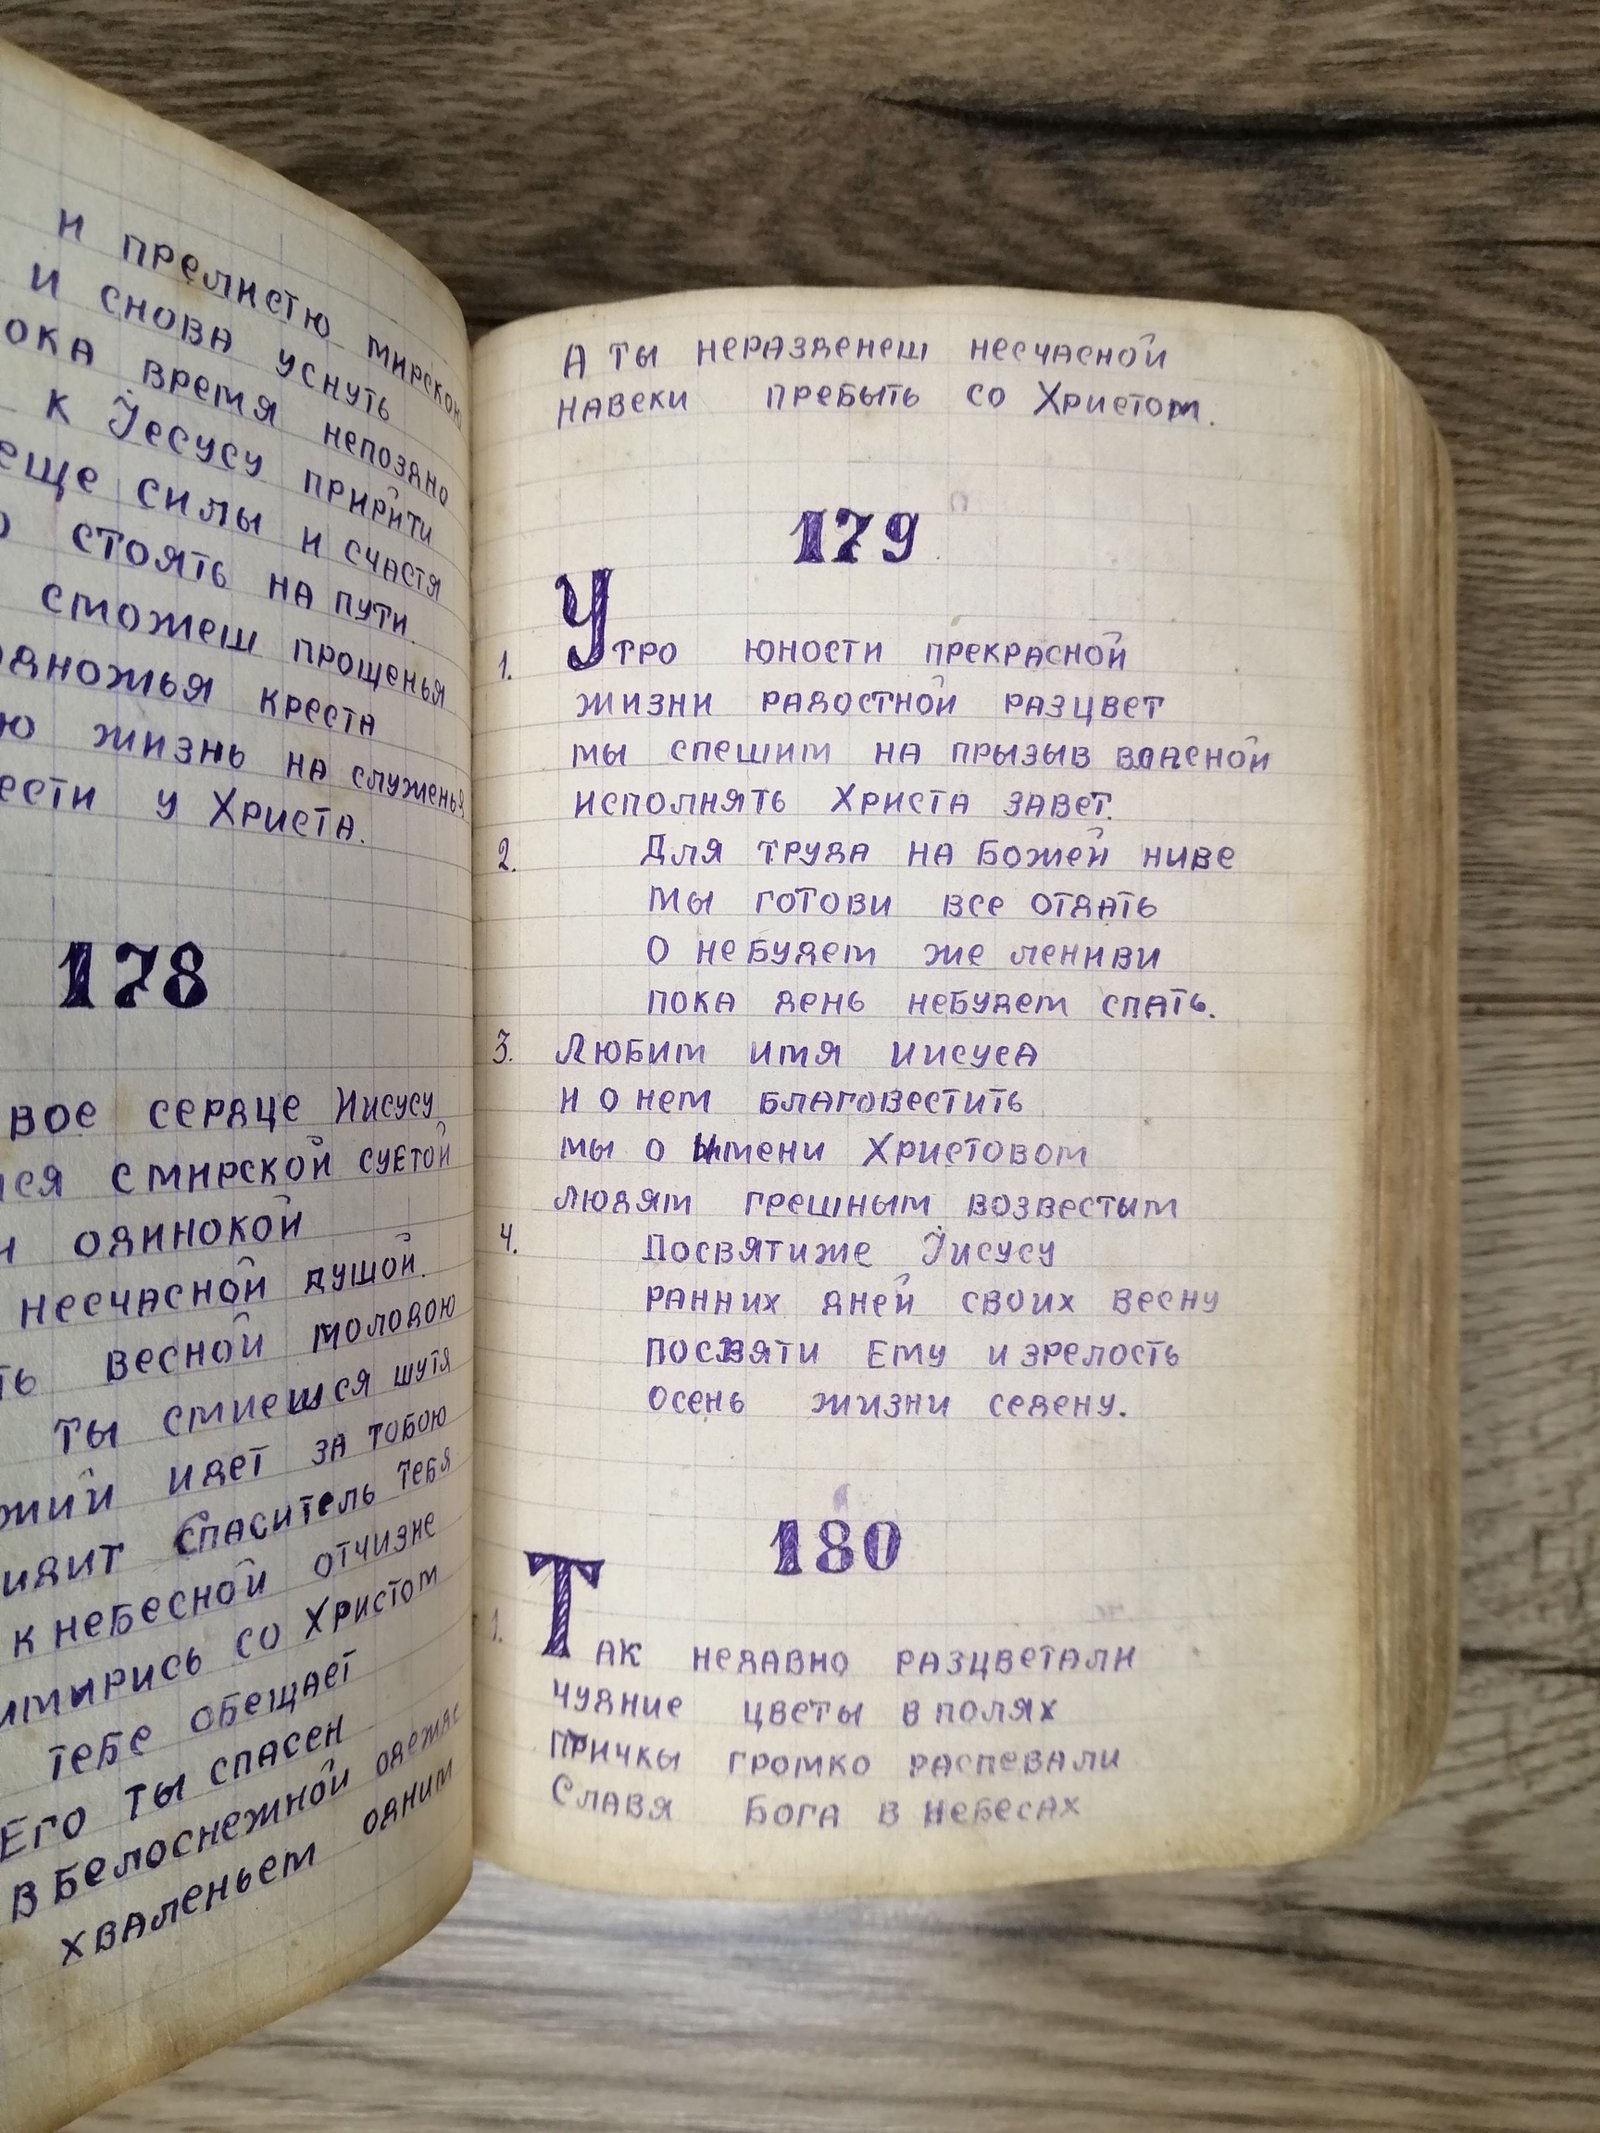 н прелистю мирскою
и снова уснуть
ока время непоздно
к Јесусу прийти
еще силы и счастя
о стоять на пути.
сможеш прощенья
одножья креста
ю жизнь на служенья
ести у Христа.
178
вое сердце Иисусу
ся с мирской суетой
и одинокой
несчасной душой.
ть весной молодою
ты смиешся шутя
жий идет за тобою
идит Спаситель тебя
к небесной отчизне
имырись со Христом
тебе обещает
Его ты спасен
в белоснежной одежде
хваленьем одним
А ты неразденеш несчасной
навеки пребыть со Христом.
179
1. Утро юности прекрасной
жизни радостной разцвет
мы спешим на прызыв власной
исполнять Христа завет.
2. Для труда на Божей ниве
мы готови все отдать
О небудем же лениви
пока день небудем спать.
3. Любим имя Иисуса
и о нем благовестить
мы о Имени Христовом
людям грешным возвестым
4. Посвятиже Јисусу
ранних дней своих весну
посвяти Ему и зрелость
осень жизни седену.
180
1. Так недавно разцветали
чудние цветы в полях
птички громко распевали
Славя Бога в небесах